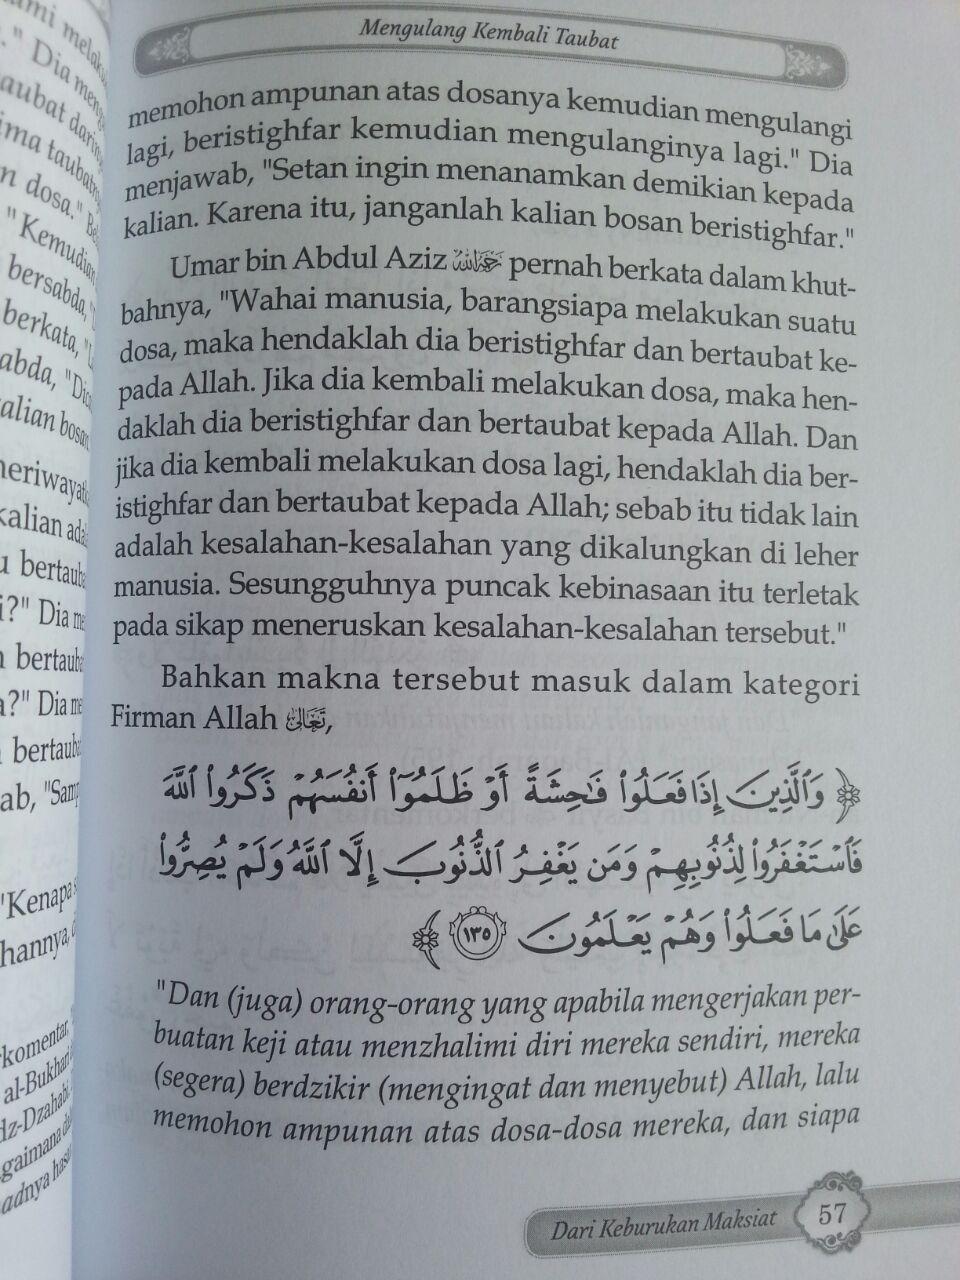 ami melaku
." Dia men
aubat dari
ima taubat
n dosa." Be
"Kemudian
bersabda,
berkata,
abda, "Di
alian bosan
neriwayat
kalian ada
u bertaub
i?" Dia m
n bertaub
a?" Dia me
bertaub
ab, "Sam
"Kenapa s
hannya,
komentar,
al-Bukhari
dz-Dzahabi
gaimana
adnya has
Mengulang Kembali Taubat
memohon ampunan atas dosanya kemudian mengulangi
lagi, beristighfar kemudian mengulanginya lagi." Dia
menjawab, "Setan ingin menanamkan demikian kepada
kalian. Karena itu, janganlah kalian bosan beristighfar."
Umar bin Abdul Aziz رحمه الله pernah berkata dalam khut-
bahnya, "Wahai manusia, barangsiapa melakukan suatu
dosa, maka hendaklah dia beristighfar dan bertaubat ke-
pada Allah. Jika dia kembali melakukan dosa, maka hen-
daklah dia beristighfar dan bertaubat kepada Allah. Dan
jika dia kembali melakukan dosa lagi, hendaklah dia ber-
istighfar dan bertaubat kepada Allah; sebab itu tidak lain
adalah kesalahan-kesalahan yang dikalungkan di leher
manusia. Sesungguhnya puncak kebinasaan itu terletak
pada sikap meneruskan kesalahan-kesalahan tersebut."
Bahkan makna tersebut masuk dalam kategori
Firman Allah تعالى,
﴿ وَٱلَّذِينَ إِذَا فَعَلُوا۟ فَـٰحِشَةً أَوْ ظَلَمُوٓا۟ أَنفُسَهُمْ ذَكَرُوا۟ ٱللَّهَ
فَٱسْتَغْفَرُوا۟ لِذُنُوبِهِمْ وَمَن يَغْفِرُ ٱلذُّنُوبَ إِلَّا ٱللَّهُ وَلَمْ يُصِرُّوا۟
عَلَىٰ مَا فَعَلُوا۟ وَهُمْ يَعْلَمُونَ ١٣٥ ﴾
"Dan (juga) orang-orang yang apabila mengerjakan per-
buatan keji atau menzhalimi diri mereka sendiri, mereka
(segera) berdzikir (mengingat dan menyebut) Allah, lalu
memohon ampunan atas dosa-dosa mereka, dan siapa
Dari Keburukan Maksiat 57